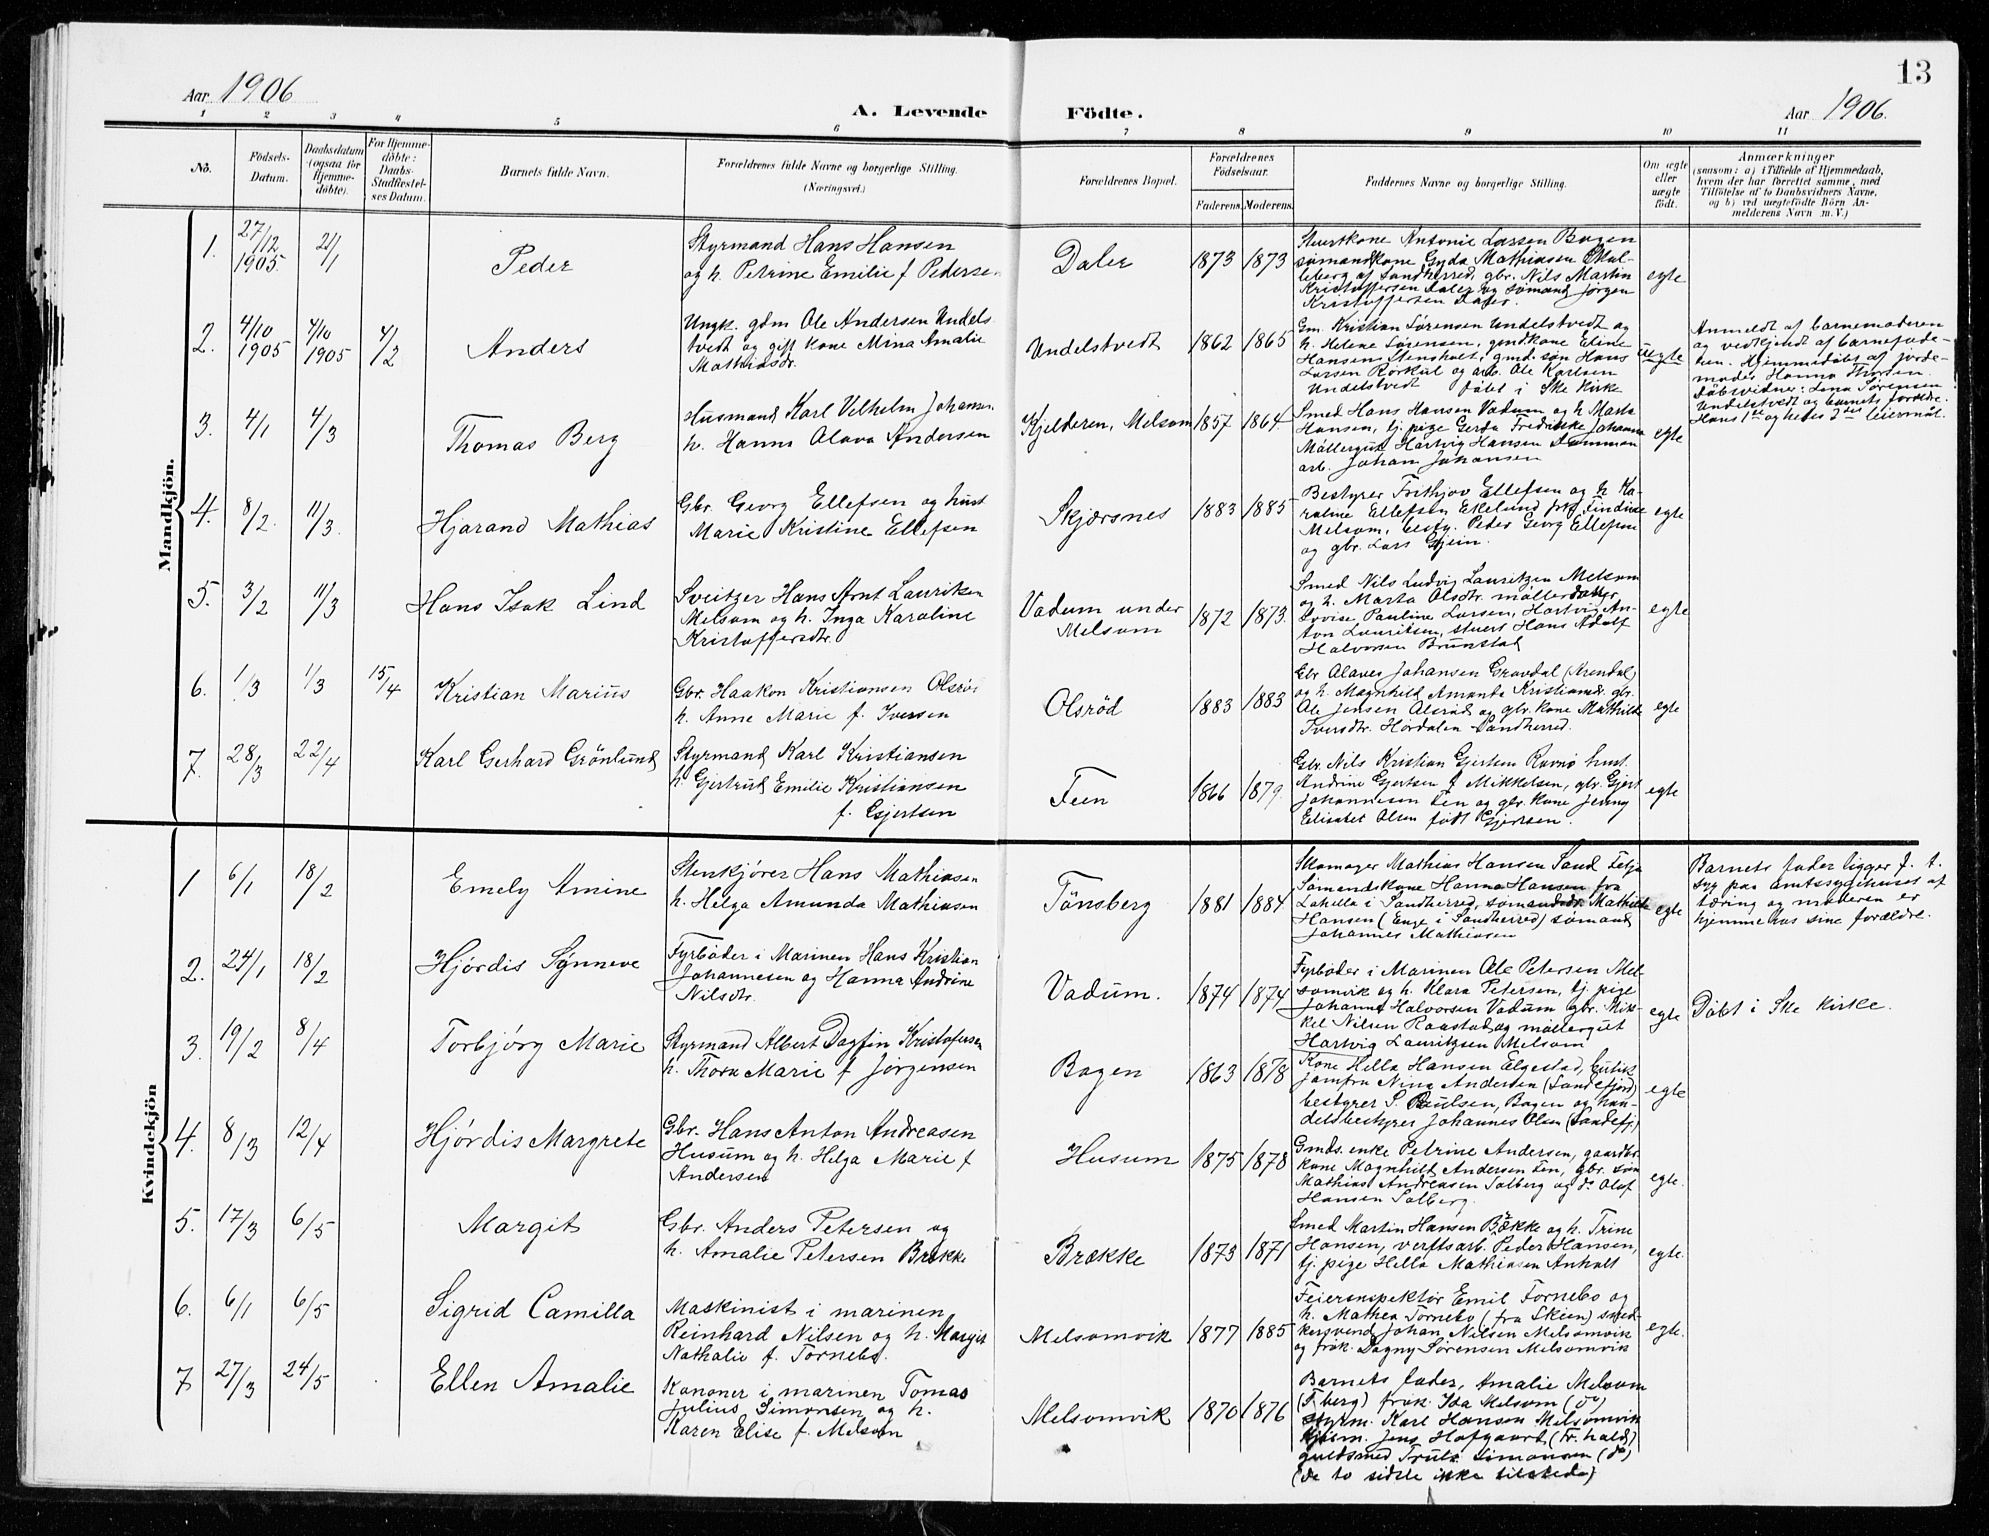 13
Aar 1906
A. Levende Födte.
Aar 1906.
1 2 3 4 5 6 7 8 9 10 11
No.
Födsels-Datum.
Daabsdatum (ogsaa for Hjemme-döbte).
For Hjemme-döbte: Daabs-Stadfæstel-ses Datum.
Barnets fulde Navn.
Forældrenes fulde Navne og borgerlige Stilling. (Næringsvei.)
Forældrenes Bopæl.
Forældrenes Födselsaar.
Faderens. Moderens.
Faddernes Navne og borgerlige Stilling.
Om ægte eller uægte født.
Anmærkninger
(saasom: a) i Tilfælde af Hjemmedaab,
hvem der har forrettet samme, med
Tilföielse af to Daabsvidners Navne,
og b) ved uægtefödte Börn An-
melderens Navn m. V.)
Mandkjön.
1. 27/12 1905. 21/1 Peder
Styrmand Hans Hansen
og h. Petrine Emilie f Pedersen
Daler 1873 1873
Stuertkone Antonie Larsen Bogen
sømandkone Gyda Mathiasen
leberg af Sandherred, gbr. Nils Martin
Kristoffersen Daler og sømand Jørgen
Kristoffersen Daler.
egte
2. 4/10 1905 4/10 1905 4/2 Anders
Ungk. gdm Ole Andersen Undels
tvedt og gift kone Mina Amalie
Mathiasdr.
Undelstvedt 1862 1865
Gm. Kristian Sørensen Undelstvedt og
h. Helene Sørensen, gmdkone Eline
Hansen Stensholt, gmd. søn Hans
Larsen Rörkul og arb. Ole Karlsen
Undelstvedt døbt i Ske Kirke
uegte
Anmeldt af barnemoderen
og vedkjendt af barnefade-
ren. Hjemmedöbt af jorde-
moder Hanna Thorsen.
Dåbsvidner: Lina Sørensen
Undelstvedt og barnets forældre.
Hans 1ste og hedes 2det leiermål.
3. 4/1 4/3 Thomas Berg
Husmand Karl Vilhelm Johansen
h. Hanna Olava Andersen
Kjelderen, Melsom 1857 1864
Smed Hans Hansen Vadum og h Marta
Hansen, tj. pige Gerda Fredrikke Johanna
Møllergut Hartvig Hansen
arb. Johan Johansen
egte
4. 8/2. 11/3. Hjarand Mathias
Gbr. Georg Ellefsen og hust
Marie Kristine Ellefsen
Skjærsnes 1883 1885
Bestyrer Frithjov Ellefsen og h Ka-
roline Ellefsen Ekelund frk
Melsom, besty. Peder Georg Ellefsen
og gbr. Lars Gjein.
egte
5. 3/2 11/3 Hans Isak Lind
Sveitzer Hans Arnt Lauritsen
Melsom og h. Inga Karoline
Kristoffersdtr.
Vadum under Melsom 1872 1873.
Smed Nils Ludvig Lauritzen Melsom
og h. Marta Olsdtr. möllerdatter
Lovise, Pauline Larsen, Hartvig An-
ton Lauritsen, stuert Hans Adolf
Halvorsen Brunstad
egte
6. 1/3 1/3 15/4 Kristian Marius
Gbr. Haakon Kristiansen Olsröd
h. Anne Marie f. Iversen
Olsröd 1883 1883
Gbr Olaves Johansen Gravdal (Arendal)
og h. Magnhild Amanda Kristiansdr. gbr.
Ole Jensen Olsröd og gbr. kone Mathilde
Iversdtr. Hørdalen Sandherred.
egte
7. 28/3 22/4 Karl Gerhard Grönlund
Styrmand Karl Kristiansen
h. Gjertrud Emilie Kristiansen
f. Gjertsen
Feen 1866 1879.
Gbr. Nils Kristian Gjertsen Ravnø hust.
Andrine Gjertsen f Mikkelsen, gbr. Gjert
Johannesen Fen og gbr. kone Jenny
Elisabet Olsen født Gjertsen.
egte
Kvindekjön
1 6/1 18/2 Emely Amine
Stenkjører Hans Mathiasen
h. Helga Amunda Mathiasen
Tönsberg 1881 1884
Skomager Mathias Hansen Sand
Sömandskone Hanna Hansen fra
Lahella i Sandherred, sømandsdr. Mathilde
Hansen (Enge i Sandherred) sömand
Johannes Mathiasen
egte
Barnets fader ligger f. t.
syg paa amtssygehuset af
tæring og moderen er
hjemme hos sine forældre.
2. 24/1 18/2 Hjórdis Synneve
Fyrbøder i Marinen Hans Kristian
Johannesen og Hanna Andrine
Nilsdtr.
Vadum. 1874 1874
Fyrbøder i Marinen Ole Petersen Mel-
somvik og h. Klara Petersen, tj. pige
Johanna Halvorsen Vadum gbr. Mik-
kel Nilsen Raastad og möllergut
Hartvig Lauritzsen Melsom
egte
Döbt i Ske kirke.
3. 19/2 8/4 Torbjørg Marie
Styrmand Albert Dagfin Kristofersen
h. Thora Marie f Jørgensen
Bogen 1863 1878
Kone Hella Hansen Elgestad, butik
jomfru Nina Andersen (Sandefjord)
bestyrer S. Paulsen, Bogen og han-
delsbestyrer Johannes Olsen (Sandefj.)
egte
4. 8/3 12/4 Hjórdis Margrete
Gbr. Hans Anton Andreasen
Husum og h. Helga Marie f
Andersen
Husum 1875 1878
Gmds. enke Petrine Andersen, gaardbr.
kone Magnhild Andersen Fen, gbr. søn
Mathias Andreasen Solberg og do Olaf
Hansen Solberg.
egte.
5. 17/3 6/5 Margit
Gbr. Anders Petersen og
h. Amalie Petersen Brekke
Brække 1873 1871
Smed Martin Hansen Bække og h. Trine
Hansen, verftsarb. Peder Hansen,
tj. pige Hella Mathiasen Anholt
egte.
6. 6/1 6/5 Sigrid Camilla
Maskinist i marinen
Reinhard Nilsen og h. Margit
Nathalie f. Tornebo.
Melsomvik 1877 1885
Feierinspektør Emil Tornebo og
h. Mathea Tornebo (fra Skien) sned-
kersvend Johan Nilsen Melsomvik
og frøk. Dagny Sørensen Melsomvik
egte.
7 27/3 24/5 Ellen Amalie
Kanoner i marinen Tomas
Julius Simonsen og h.
Karen Elise f. Melsom
Melsomvik 1870 1876
Barnets fader, Amalie Melsom
(Tberg) frøk. Ida Melsom (do)
styrm. Karl Hansen Melsomvik
Jens Hofgaart (Fr.hald)
guldsmed Truls Simonsen (do)
(de to sidste ikke tilstede)